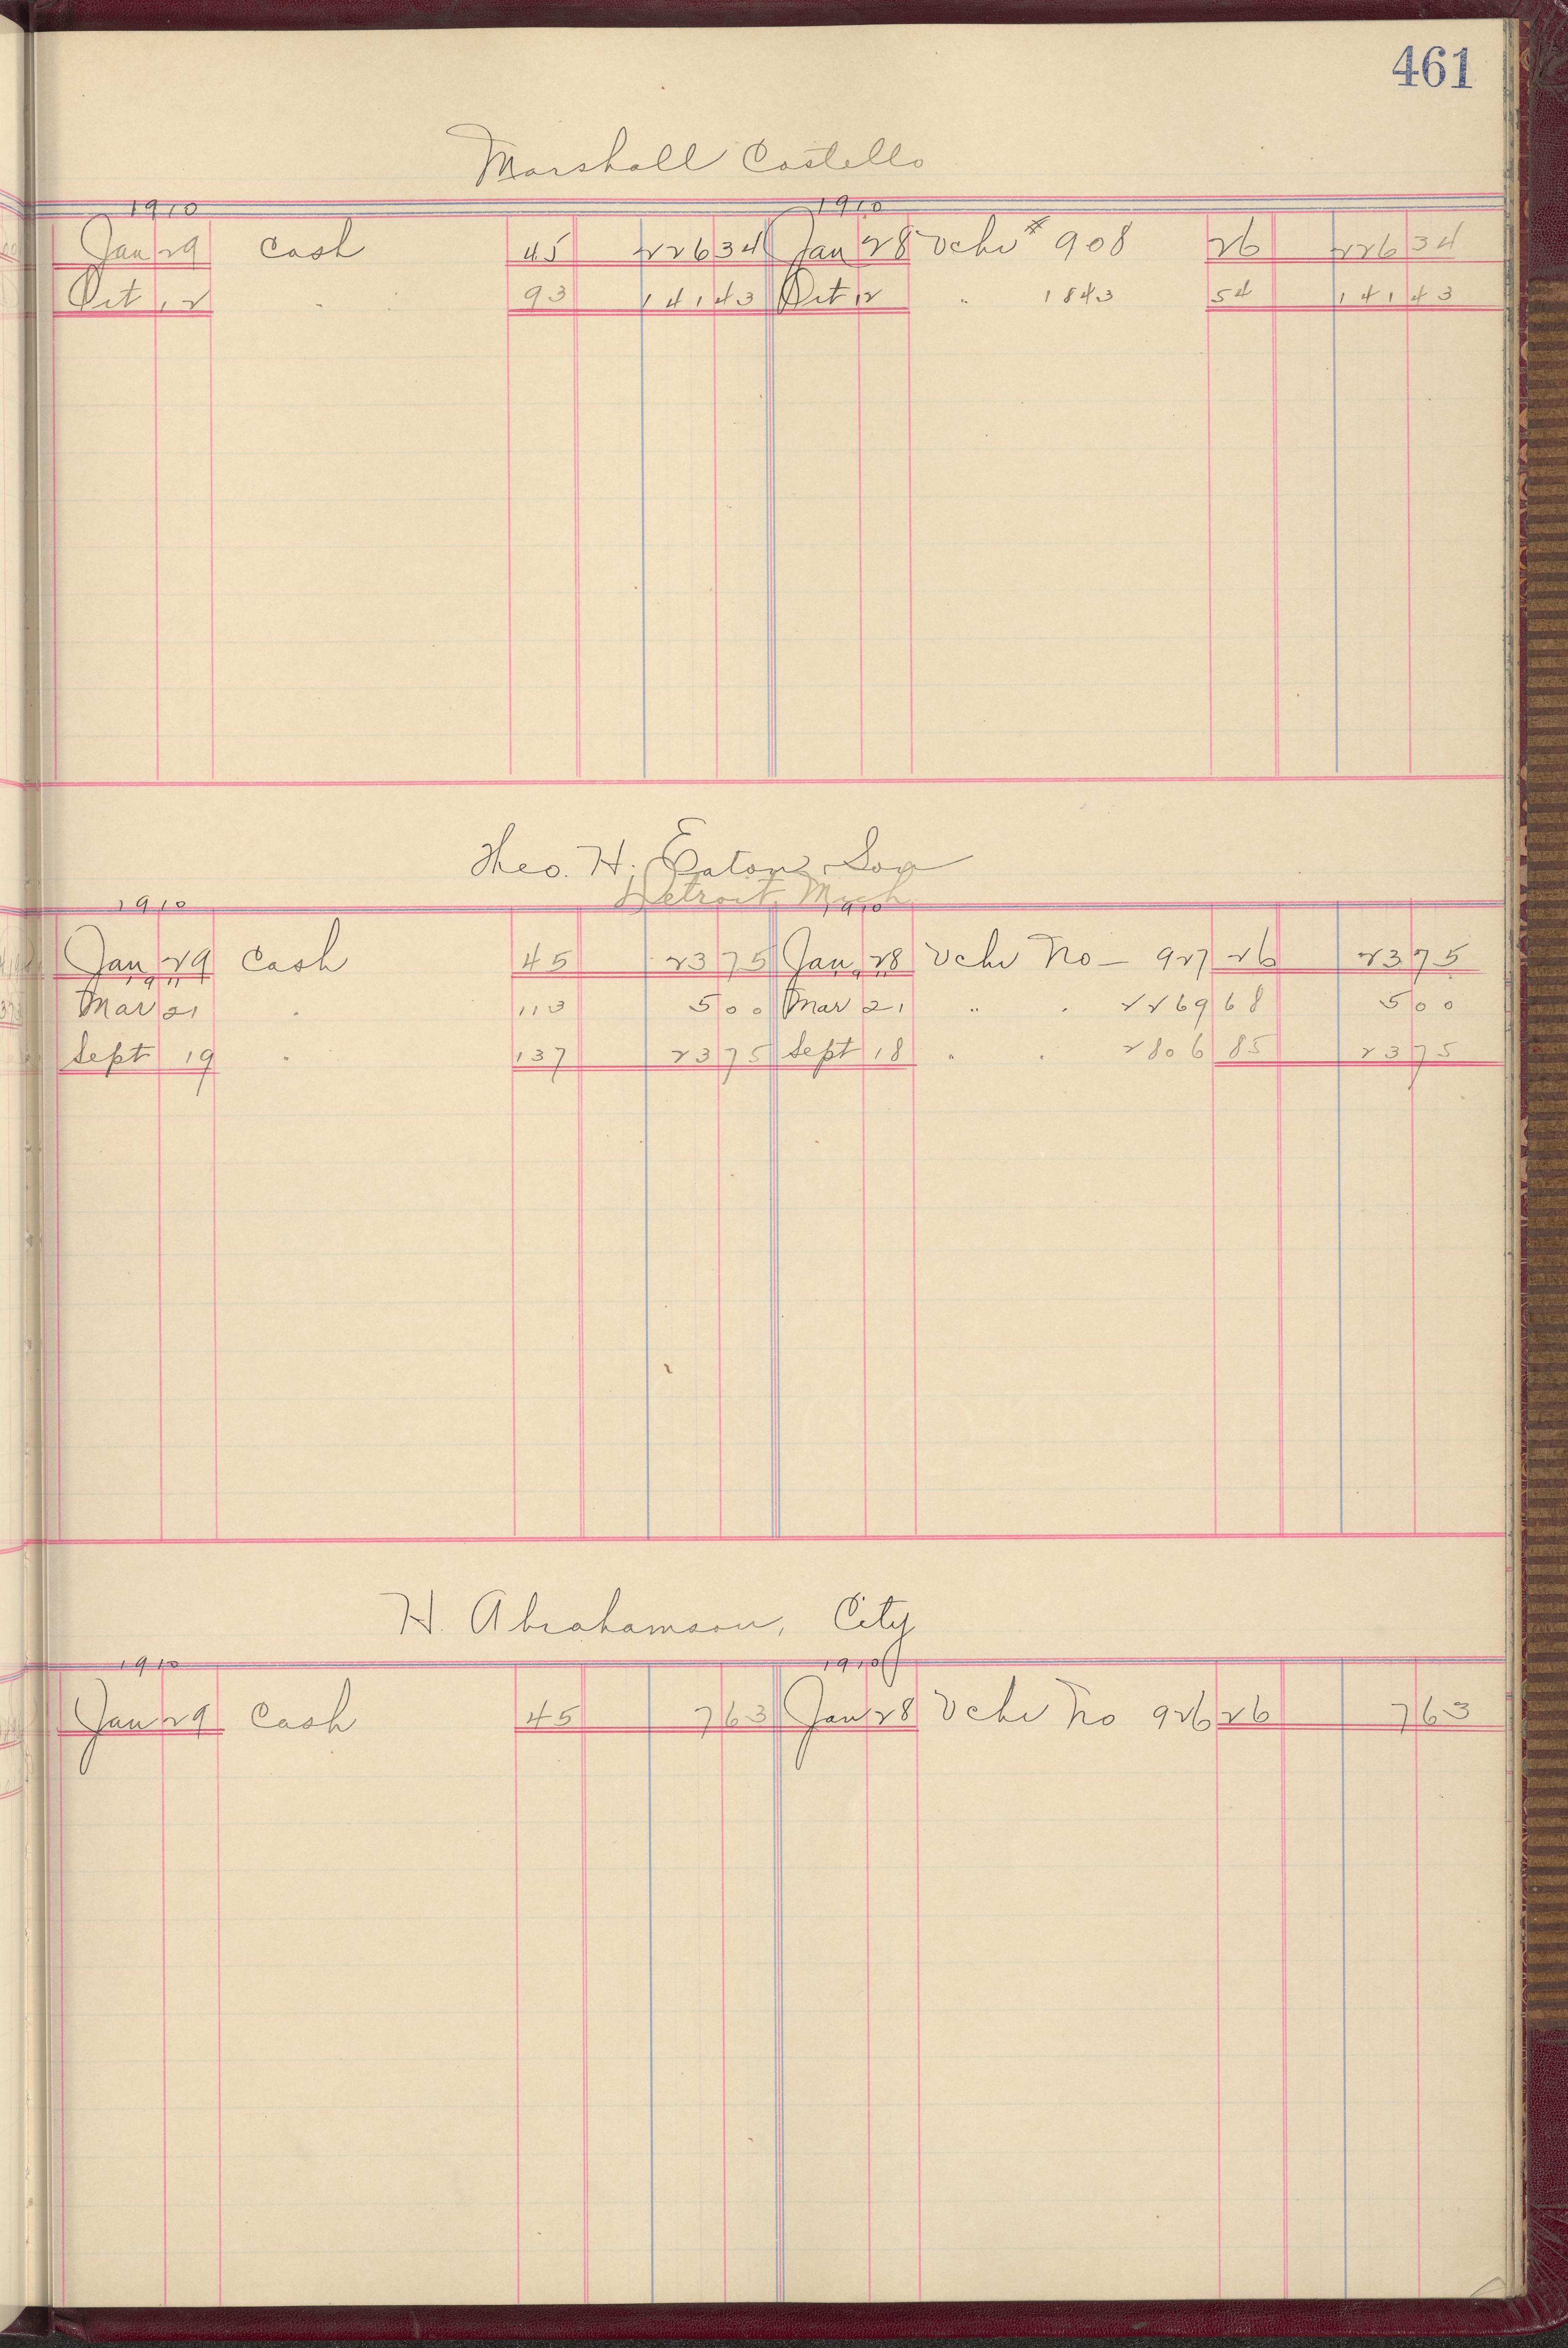 461
Marshall Costello
1910 1910
Jan 29 Cash 45 226 34 Jan 28 Vchr # 908 26 226 34
Oct 12 " 93 141 43 Oct 12 " 1843 54 141 43
Theo. H. Eaton & Son
Detroit Mich
1910 1910
Jan 29 Cash 45 23 75 Jan 28 Vchr No - 927 26 23 75
1911 1911
Mar 21 " 113 5 00 Mar 21 " " 2269 68 5 00
Sept 19 " 137 23 75 Sept 18 " " 2806 85 23 75
H. Abrahamson, City
1910 1910
Jan 29 Cash 45 7 63 Jan 28 Vchr No 926 26 7 63